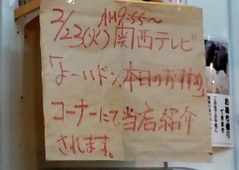 AM9:55〜
2/23(火)関西テレビ
よーいドン、本日のお時
コーナーにて当店紹介
されます。